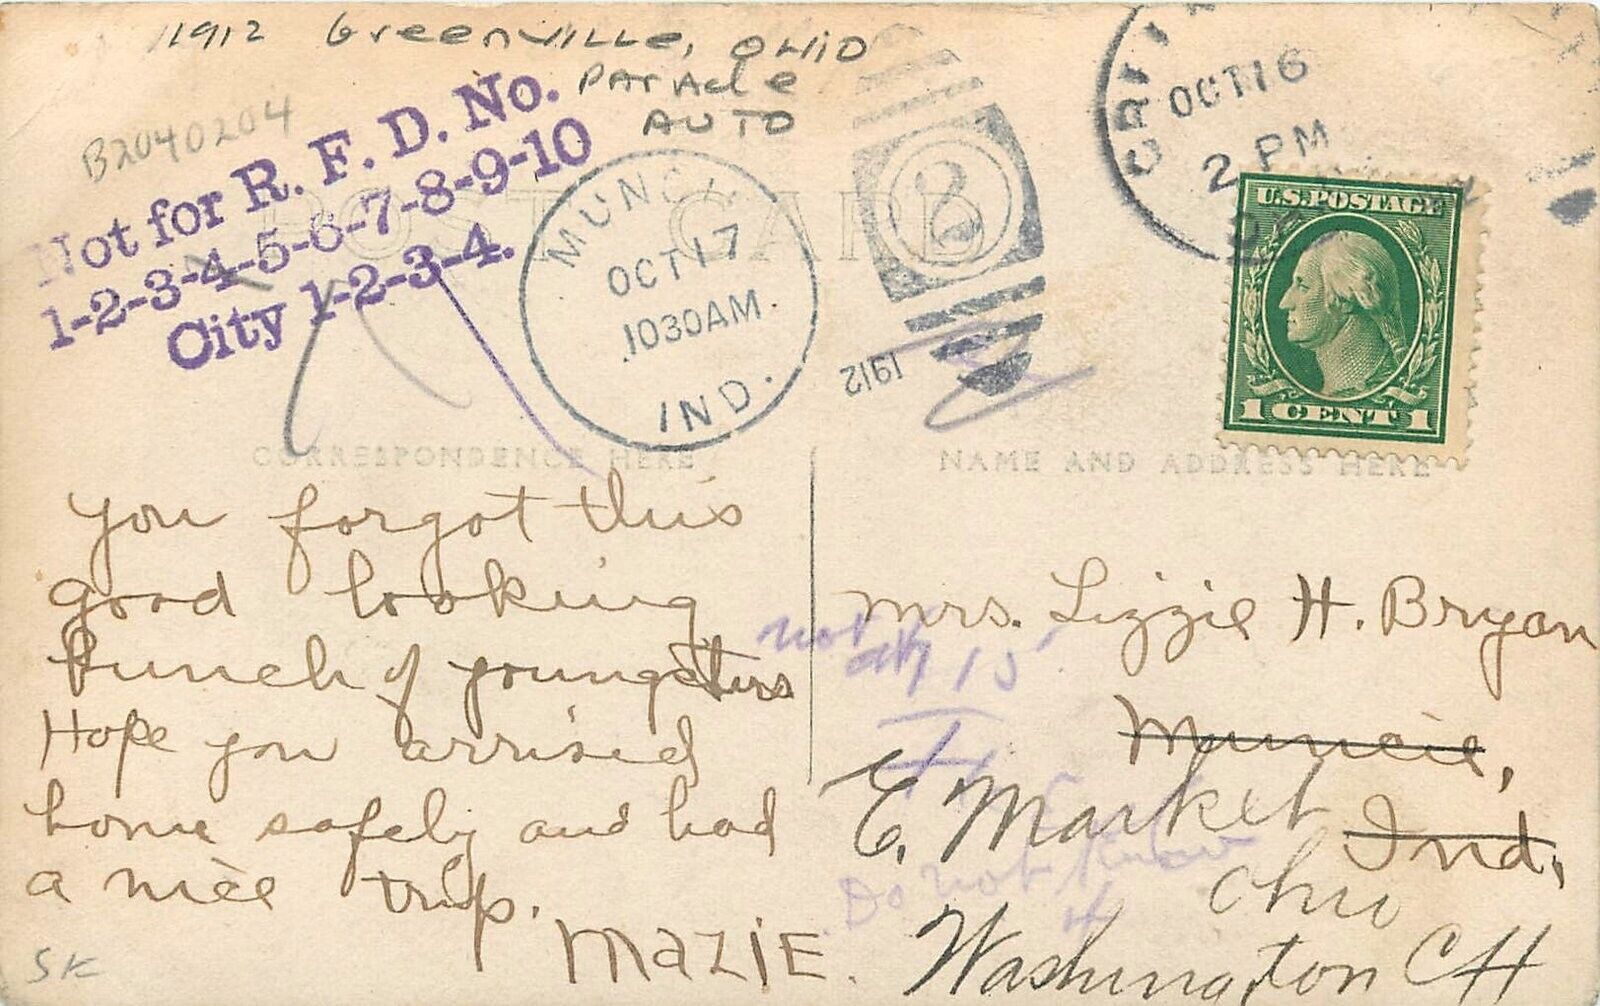 1912 Greenville, OHIO
Parade
AUTO
B2040204
Not for R. F. D. No.
1-2-3-4-5-6-7-8-9-10
City 1-2-3-4.
POST CARD
MUNCIE
OCT 17
1030AM
IND.
1912
2
OCT 16
2 PM
U.S. POSTAGE
1 CENT 1
CORRESPONDENCE HERE
NAME AND ADDRESS HERE
you forgot this
good looking
bunch of youngsters
Hope you arrived
home safely and had
a nice trip.
MAZIE.
SK
Mrs. Lizzie H. Bryan
Muncie,
Ind.
not at 15
E. Market
Do not know
Ohio
Washington CH